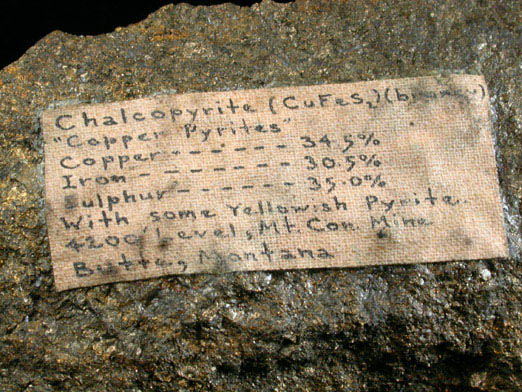 Chalcopyrite (CuFeS₂)
"Copper Pyrites"
Copper - - - - - - 34.5%
Iron - - - - - - - - 30.5%
Sulphur - - - - - - 35.0%
With some Yellowish Pyrite.
4200' Level, Mt. Con Mine
Butte, Montana